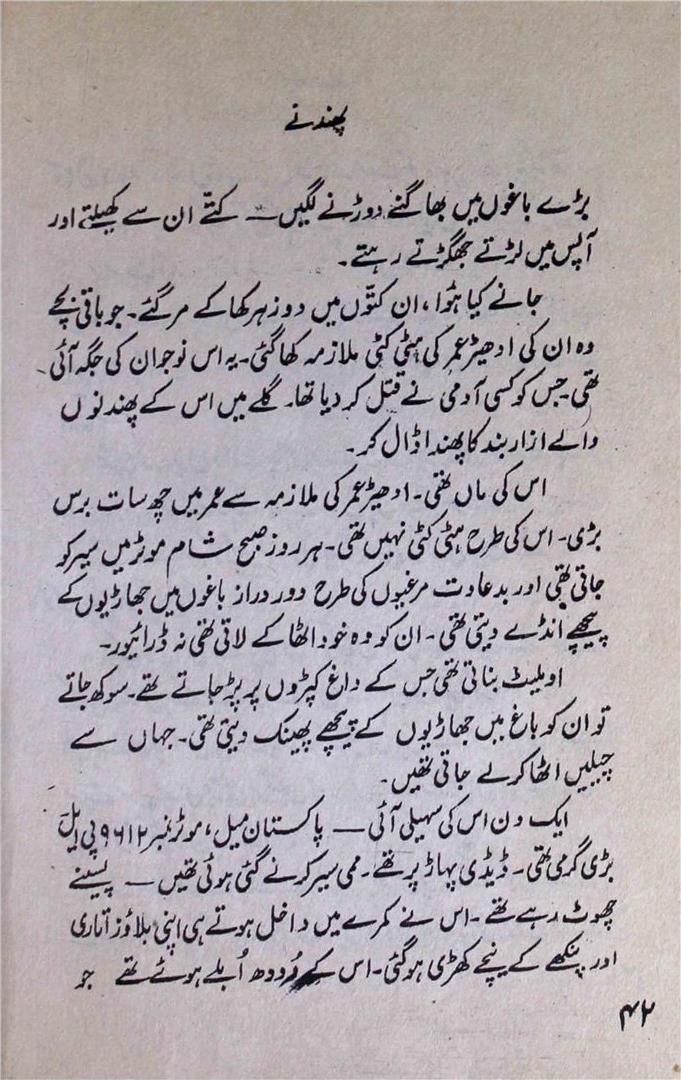 پھندنے
بڑے باغوں میں بھاگنے دوڑنے لگیں — کتّے ان سے کھیلتے اور
آپس میں لڑتے جھگڑتے رہتے۔
جانے کیا ہُوا، ان کتّوں میں دو زہر کھا کے مر گئے۔ جو باقی بچے
وہ ان کی ادھیڑ عمر کی ہٹی کٹی ملازمہ کھا گئی۔ یہ اس نوجوان کی جگہ آئی
تھی جس کو کسی آدمی نے قتل کر دیا تھا۔ گلے میں اس کے پھندنوں
والے ازار بند کا پھندا ڈال کر۔
اس کی ماں تھی۔ ادھیڑ عمر کی ملازمہ سے عمر میں چھ سات برس
بڑی۔ اس کی طرح ہٹی کٹی نہیں تھی۔ ہر روز صبح شام موٹر میں سیر کو
جاتی تھی اور بدعاوت مرغیوں کی طرح دور دراز باغوں میں جھاڑیوں کے
پیچھے انڈے دیتی تھی۔ ان کو وہ خود اٹھا کے لاتی تھی نہ ڈرائیور۔
اوملیٹ بناتی تھی جس کے داغ کپڑوں پر پڑ جاتے تھے۔ سوکھ جاتے
تو ان کو باغ میں جھاڑیوں کے پیچھے پھینک دیتی تھی۔ جہاں سے
چیلیں اٹھا کر لے جاتی تھیں۔
ایک دن اس کی سہیلی آئی — پاکستان میل، موٹر نمبر ۹۶۱۲ پی ایل
بڑی گرمی تھی۔ ڈیڈی پہاڑ پر تھے۔ ممی سیر کرنے گئی ہوئی تھیں — پسینے
چھوٹ رہے تھے۔ اس نے کمرے میں داخل ہوتے ہی اپنی بلاؤز اتاری
اور پنکھے کے نیچے کھڑی ہو گئی۔ اس کے دُودھ اُبلے ہوئے تھے جو
۴۲